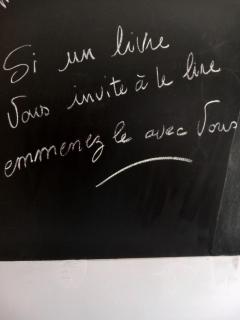 Si un livre
Vous invite à le lire
emmenez le avec Vous